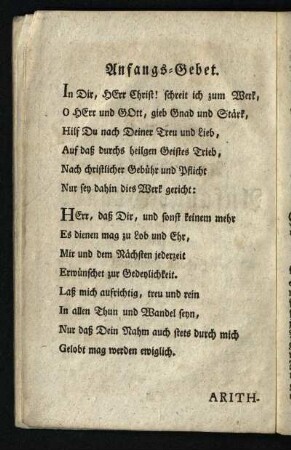 Anfangs-Gebet.
In Dir, HErr Christ! schreit ich zum Werk,
O HErr und GOtt, gieb Gnad und Stärk,
Hilf Du nach Deiner Treu und Lieb,
Auf daß durchs heilgen Geistes Trieb,
Nach christlicher Gebühr und Pflicht
Nur sey dahin dies Werk gericht:
HErr, daß Dir, und sonst keinem mehr
Es dienen mag zu Lob und Ehr,
Mir und dem Nächsten jederzeit
Erwünschet zur Gedeylichkeit.
Laß mich aufrichtig, treu und rein
In allen Thun und Wandel seyn,
Nur daß Dein Nahm auch stets durch mich
Gelobt mag werden ewiglich.
ARITH-